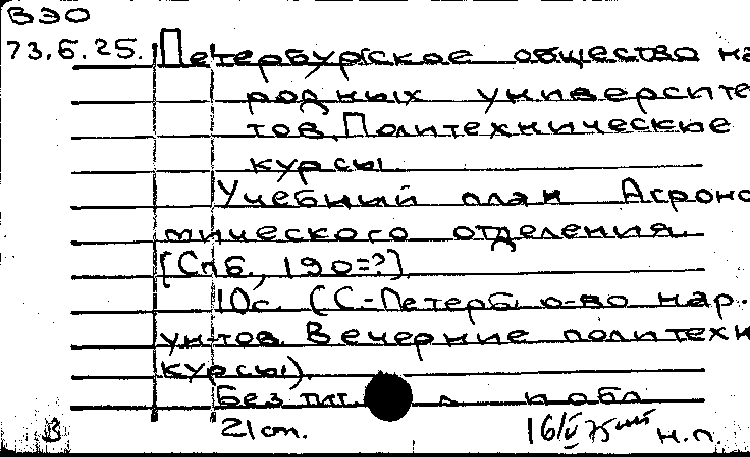 ВЭО
73.6.25. Петербургское общество на
родных университе
тов. Политехнические
курсы.
Учебный план Агроно
мического отделения.
[Спб., 190=?].
10с. (С-Петерб. о-во нар.
ун-тов. Вечерние политехн
курсы).
Без тит. л. и обл.
21 см.
н.п.